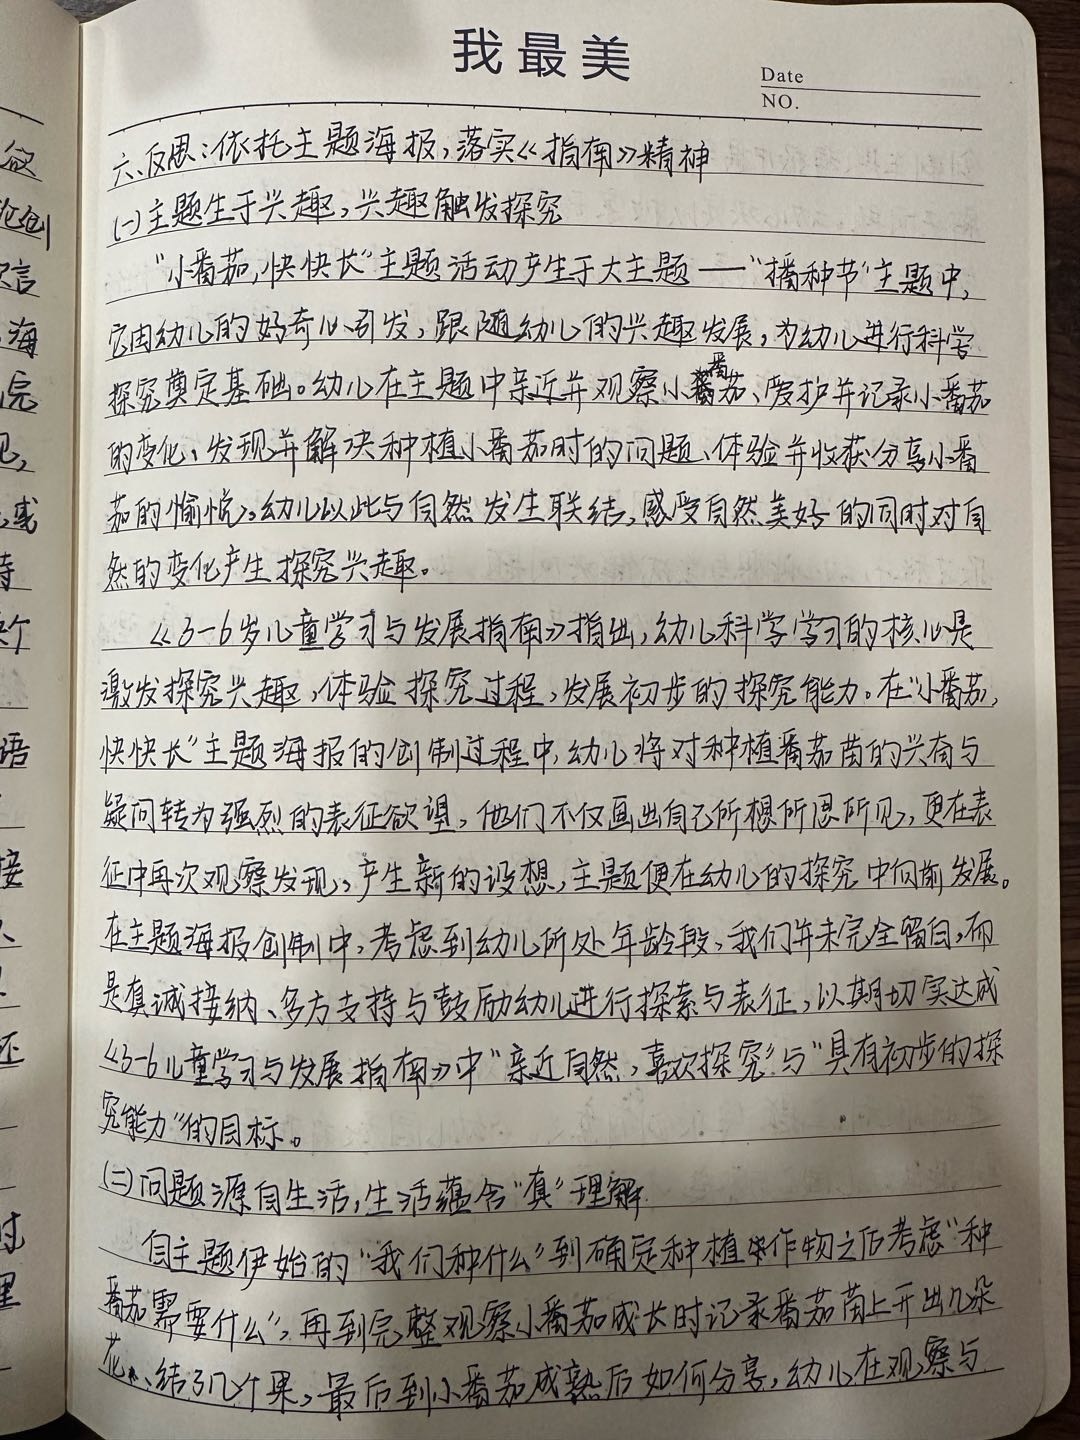 我最美
Date
NO.
六、反思：依托主题海报，落实《指南》精神
(一)主题生于兴趣，兴趣触发探究
“小番茄，快快长”主题活动产生于大主题——“播种节”主题中，
它由幼儿的好奇心引发，跟随幼儿的兴趣发展，为幼儿进行科学
探究奠定基础。幼儿在主题中亲近并观察小番茄、爱护并记录小番茄
的变化、发现并解决种植小番茄时的问题、体验并收获分享小番
茄的愉悦。幼儿以此与自然发生联结，感受自然美好的同时对自
然的变化产生探究兴趣。
《3-6岁儿童学习与发展指南》指出，幼儿科学学习的核心是
激发探究兴趣，体验探究过程，发展初步的探究能力。在“小番茄，
快快长”主题海报的创制过程中，幼儿将对种植番茄苗的兴奋与
疑问转为强烈的表征欲望，他们不仅画出自己所想所思所见，更在表
征中再次观察发现，产生新的设想，主题便在幼儿的探究中向前发展。
在主题海报创制中，考虑到幼儿所处年龄段，我们并未完全留白，而
是真诚接纳、多方支持与鼓励幼儿进行探索与表征，以期切实达成
《3-6儿童学习与发展指南》中“亲近自然，喜欢探究”与“具有初步的探
究能力”的目标。
(二)问题源自生活，生活蕴含“真”理解
自主题伊始的“我们种什么”到确定种植作物之后考虑“种
番茄需要什么”，再到完整观察小番茄成长时记录番茄苗上开出几朵
花、结了几个果，最后到小番茄成熟后如何分享，幼儿在观察与
欲
创
言
海
院
见，
或
待
个
语
接
还
时
理